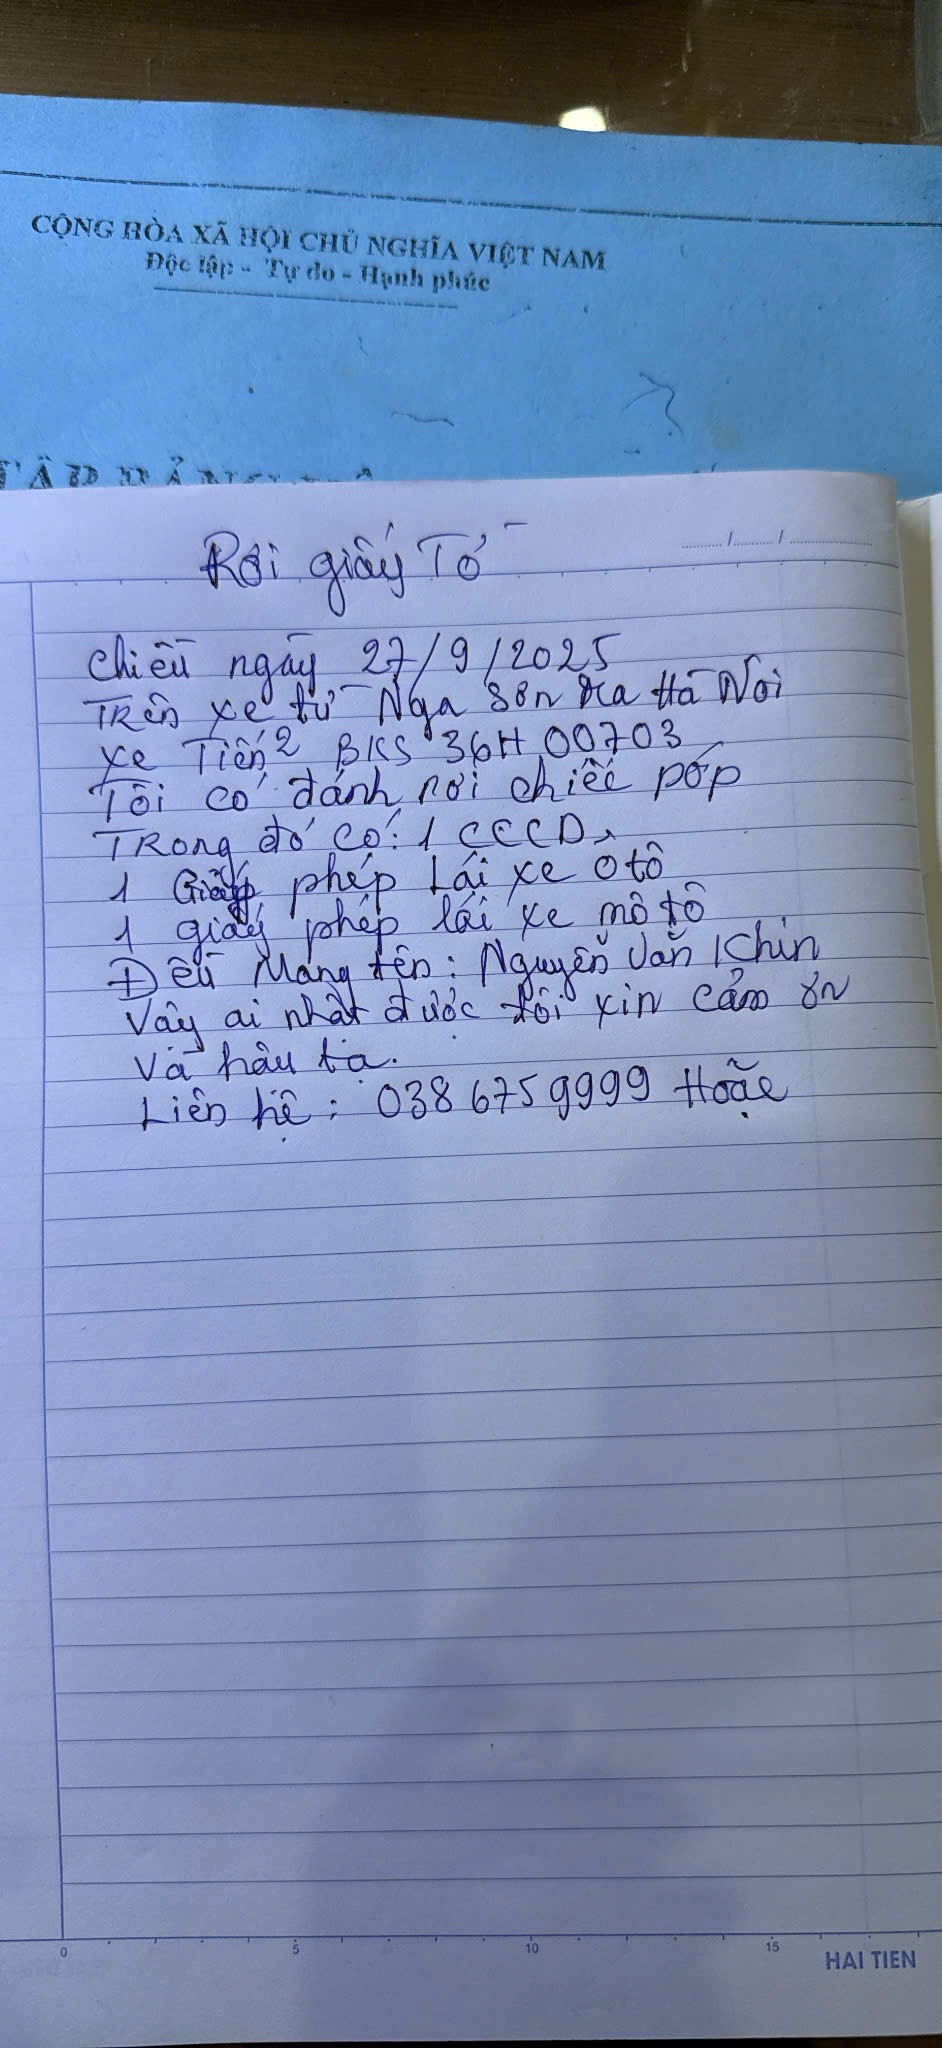 CỘNG HÒA XÃ HỘI CHỦ NGHĨA VIỆT NAM
Độc lập - Tự do - Hạnh phúc
Rơi giấy Tờ
chiều ngày 27/9/2025
TRên xe từ Nga Sơn ra Hà Nội
xe Tiến² BKS 36H 00703
Tôi có đánh rơi chiếc póp
TRong đó có: 1 CCCD,
1 Giấy phép Lái xe ôtô
1 giấy phép lái xe mô tô
Đều Mang tên: Nguyễn Văn Khin
Vây ai nhặt được tôi xin cảm ơn
và hậu tạ.
Liên hệ: 038 675 9999 Hoặc
0 5 10 15
HAI TIEN